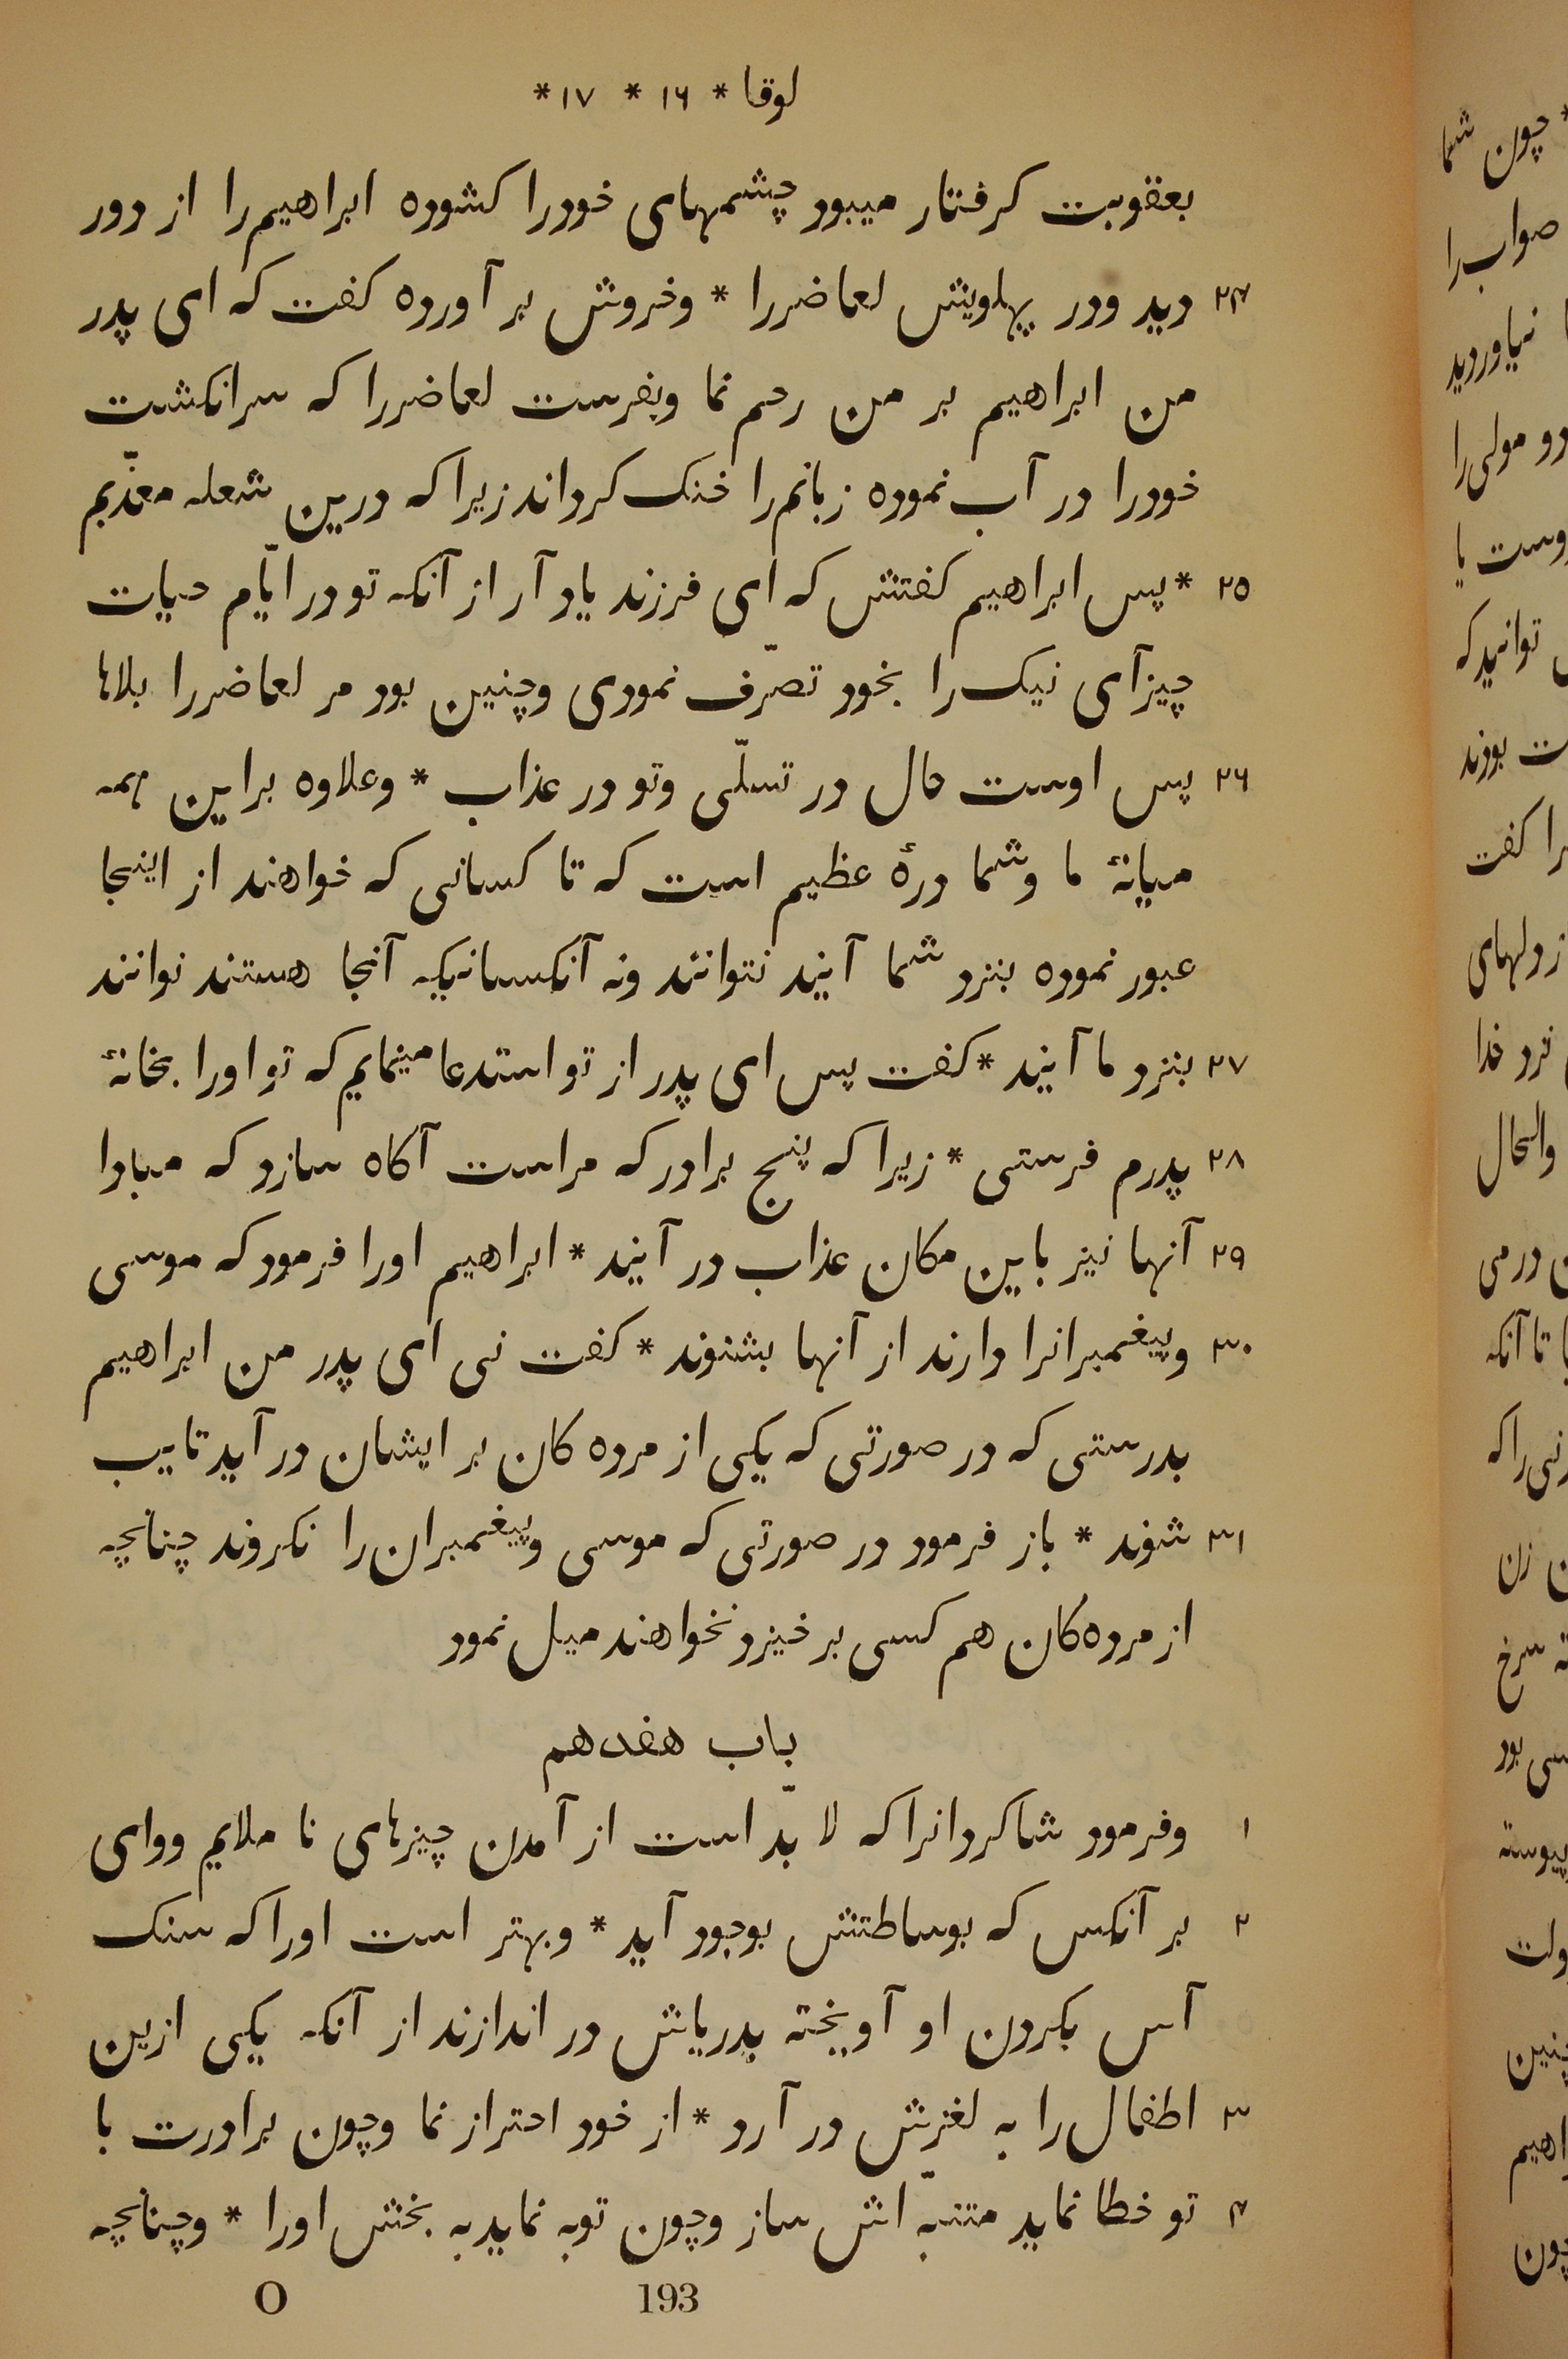 لوقا * ۱۶ * ۱۷ *
بعقوبت کرفتار میبود چشمهای خودرا کشوده ابراهیم‌را از دور
۲۴ دید ودر پهلویش لعاضررا * وخروش بر آورده کفت که ای پدر
من ابراهیم بر من رحم نما وبفرست لعاضررا که سرانکشت
خودرا در آب نموده زبانم‌را خنک کرداند زیراکه درین شعله معذّبم
۲۵ * پس ابراهیم کفتش که ای فرزند یاد آر از آنکه تو در ایّام حیات
چیزآی نیک‌را بخود تصرّف نمودی وچنین بود مر لعاضررا بلاها
۲۶ پس اوست حال در تسلّی وتو در عذاب * وعلاوه براین همه
میانهٔ ما وشما درهٔ عظیم است که تا کسانی که خواهند از اینجا
عبور نموده بنزد شما آیند نتوانند ونه آنکسانیکه آنجا هستند توانند
۲۷ بنزد ما آیند * کفت پس ای پدر از تو استدعا مینمایم که تو اورا بخانهٔ
۲۸ پدرم فرستی * زیرا که پنج برادر که مراست آکاه سازد که مبادا
۲۹ آنها نیز باین مکان عذاب در آیند * ابراهیم اورا فرمود که موسی
۳۰ وپیغمبرانرا دارند از آنها بشنوند * کفت نی ای پدر من ابراهیم
بدرستی که در صورتی که یکی از مرده کان بر ایشان در آید تایب
۳۱ شوند * باز فرمود در صورتی که موسی وپیغمبران‌را نکروند چنانچه
از مرده‌کان هم کسی بر خیزد نخواهند میل نمود
باب هفدهم
۱ وفرمود شاکردانرا که لا بدّ است از آمدن چیزهای نا ملایم ووای
۲ بر آنکس که بوساطتش بوجود آید * وبهتر است اورا که سنک
آس بکردن او آویخته بدریاش در اندازند از آنکه یکی ازین
۳ اطفال‌را به لغزش در آرد * از خود احتراز نما وچون برادرت با
۴ تو خطا نماید متنبّه اش ساز وچون توبه نماید به بخش اورا * وچنانچه
193 O